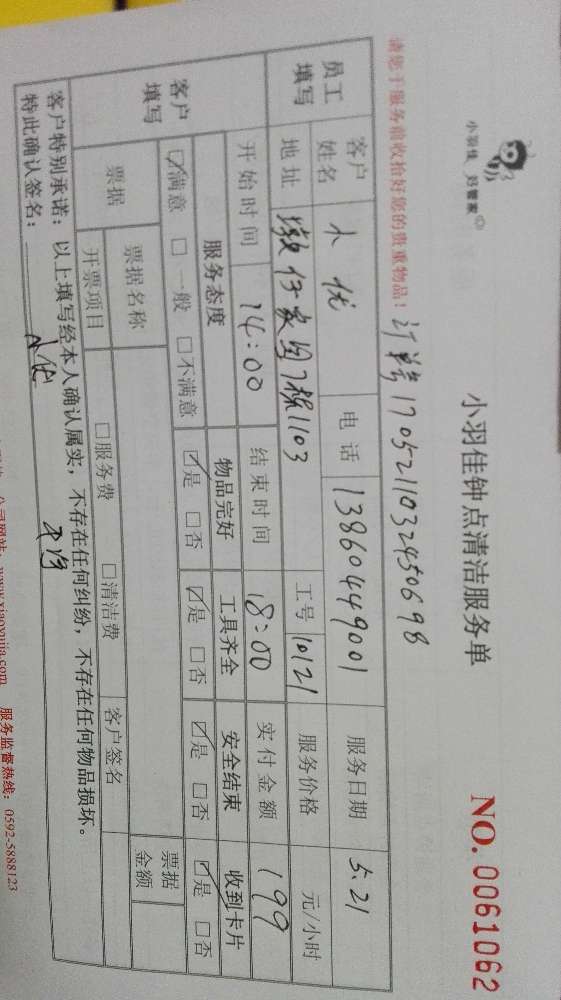 小羽佳 好管家
小羽佳钟点清洁服务单
NO. 0061062
请您于服务前收拾好您的贵重物品!
订单号 17052110324506 98
员工填写 客户姓名 小优 电话 13860449001 服务日期 5.21
地址 7栋1103 工号 10121 服务价格 元/小时
客户填写 开始时间 14:00 结束时间 18:00 实付金额 199
服务态度 物品完好 工具齐全 安全结束 收到卡片
☑满意 □一般 □不满意 ☑是 □否 ☑是 □否 ☑是 □否 ☑是 □否
票据 票据名称 票据金额
开票项目 □服务费 □清洁费 客户签名
客户特别承诺:以上填写经本人确认属实,不存在任何纠纷,不存在任何物品损坏。
特此确认签名: 小优
公司网站:www.xiaoyujia.com 服务监督热线:0592-5888123